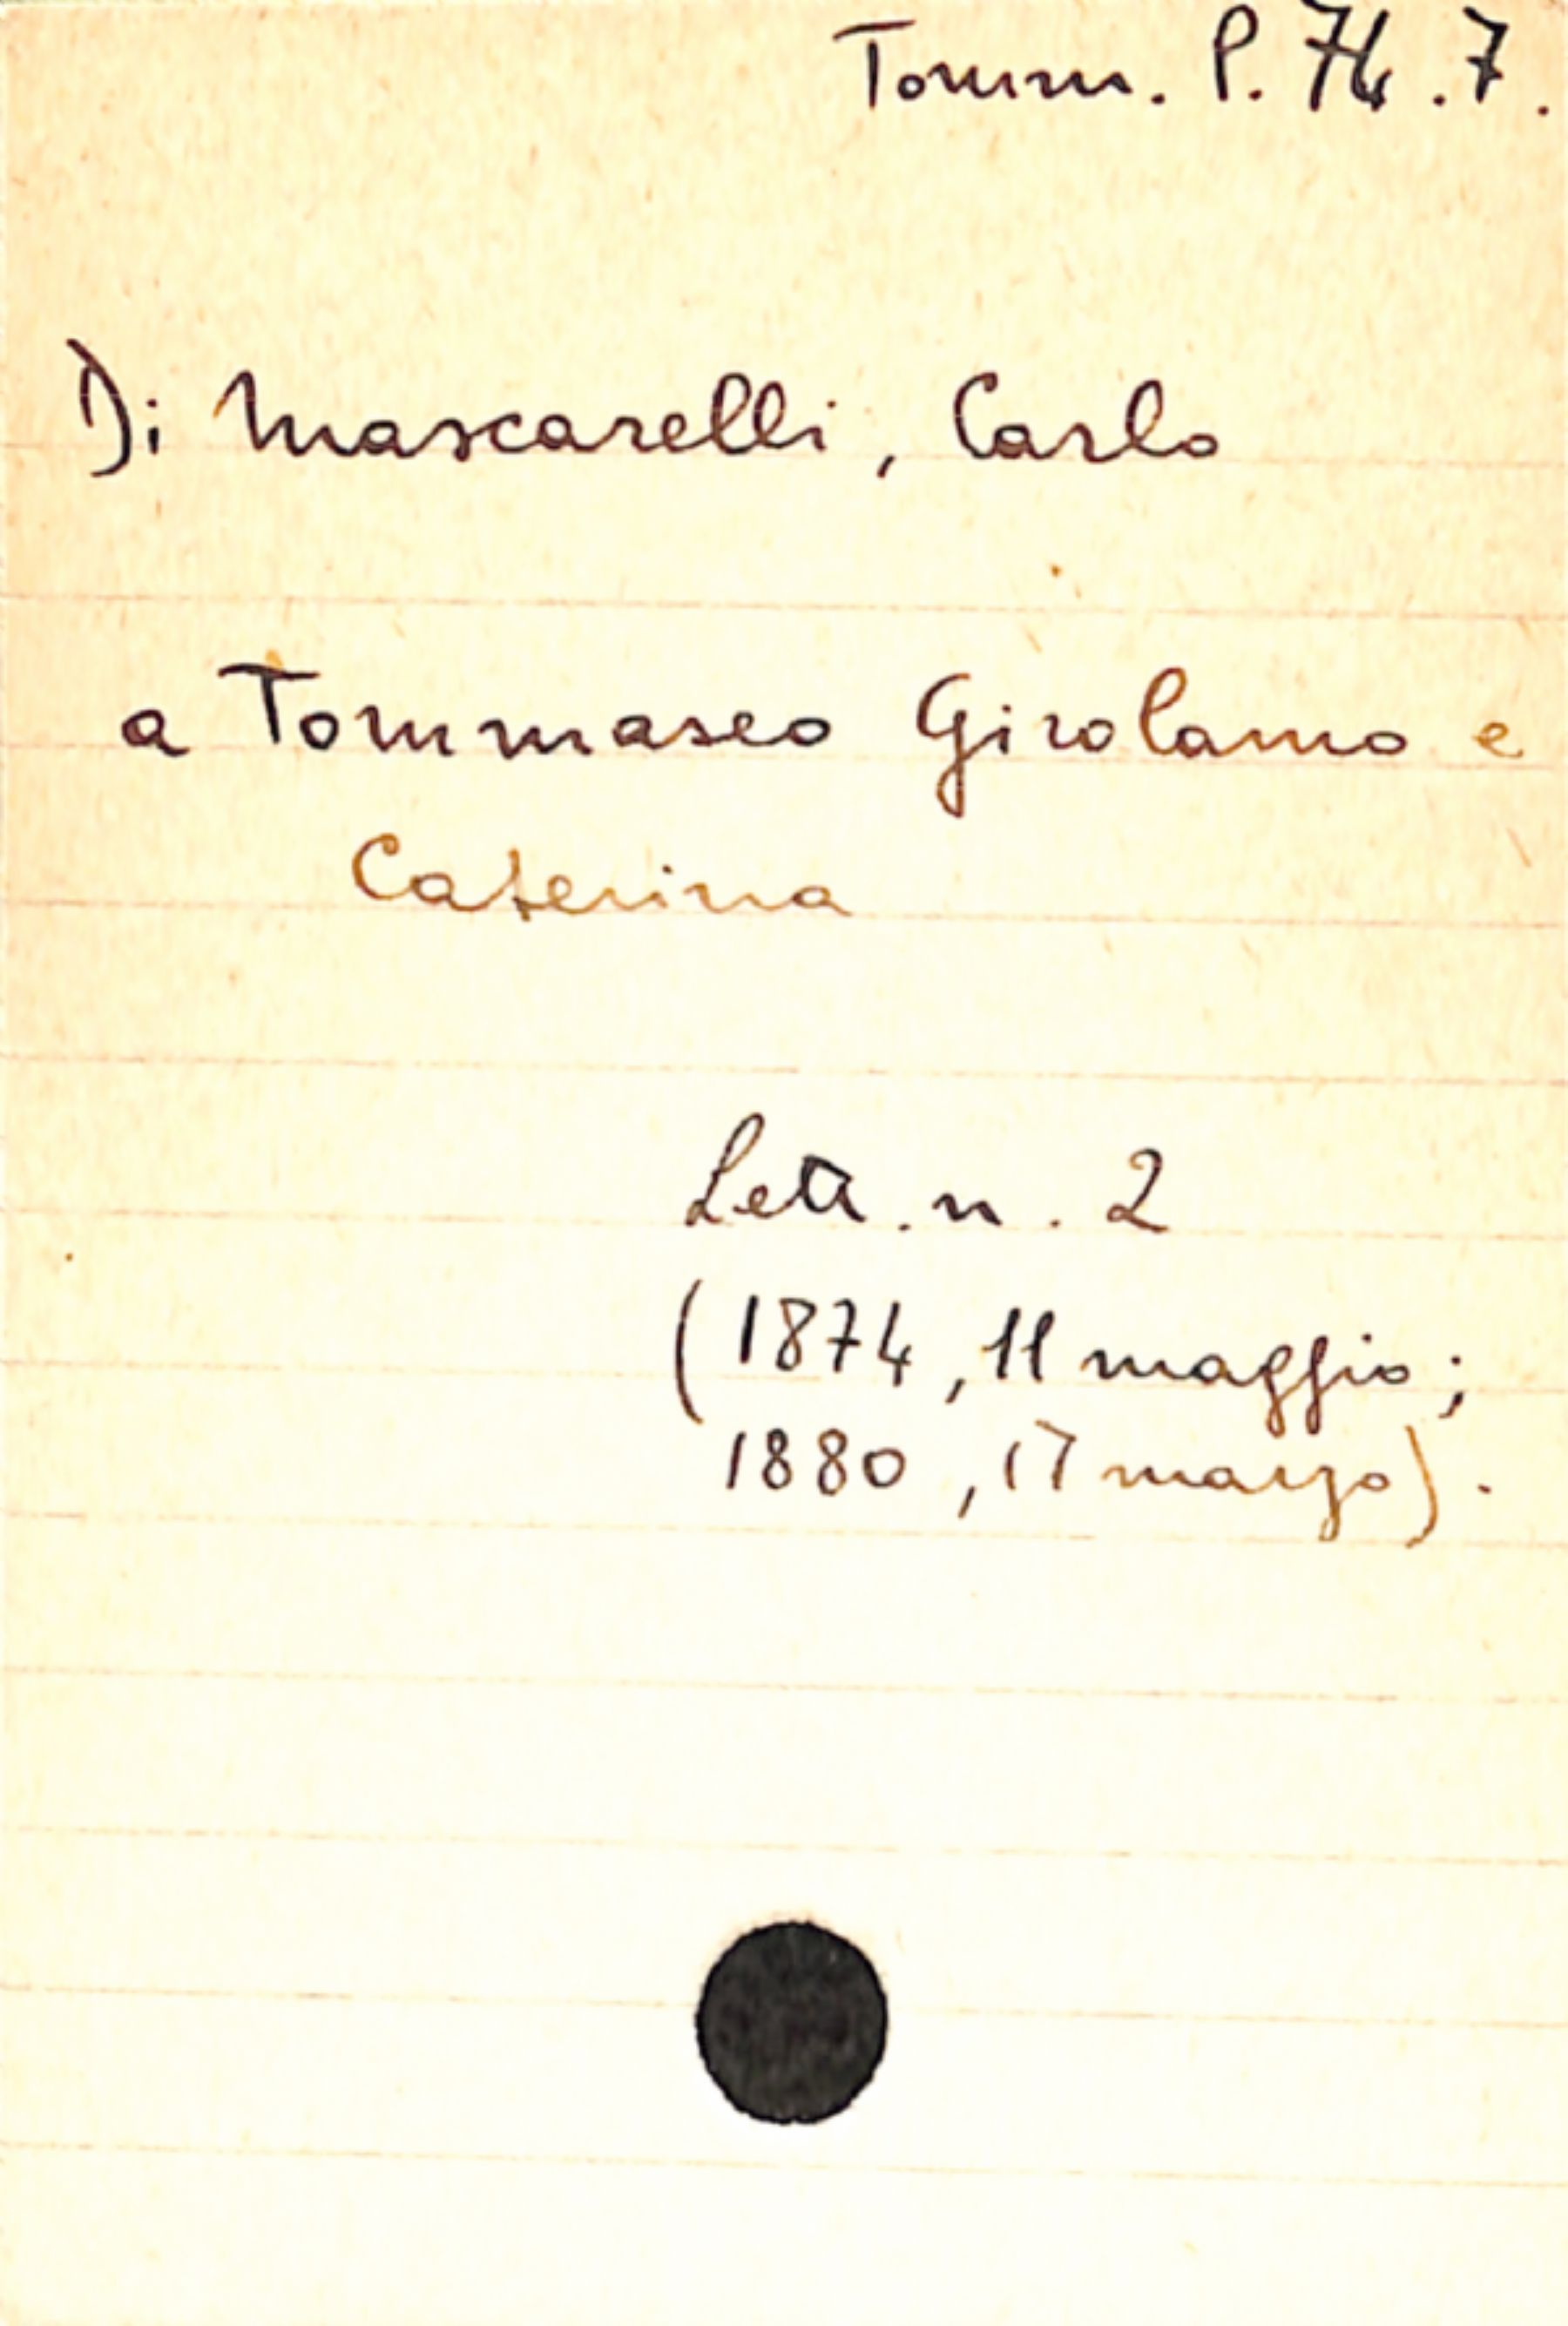 Tomm. P. 74.7.
Di Mascarelli, Carlo
a Tommaseo Girolamo e
Caterina
Lett. n. 2
(1874, 11 maggio;
1880, 17 marzo).